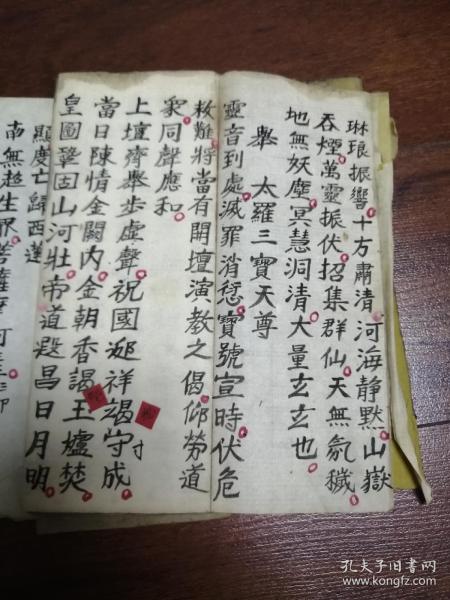 琳琅振響十方肅清河海静默山嶽
吞煙萬靈振伏招集群仙天無氛穢
地無妖塵冥慧洞清大量玄玄也
舉 太羅三寶天尊
靈音到處滅罪消愆寶號宣時伏危
救難將當有開壇演教之偈仰勞道
衆同聲應和
上壇齊舉步虛聲祝國迎祥竭寸守成
當日陳情金闕内金朝香謁王爐焚
皇圖鞏固山河壯帝道遐昌日月明
顯度亡歸西蓮
南無超生界菩薩摩訶
孔夫子旧书网
www.kongfz.com